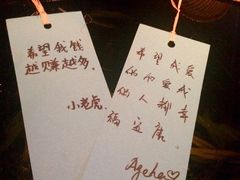 希望我钱
越赚越多。
小老虎.
希望我爱
的和爱我
的人都幸
福安康.
Ageha♡